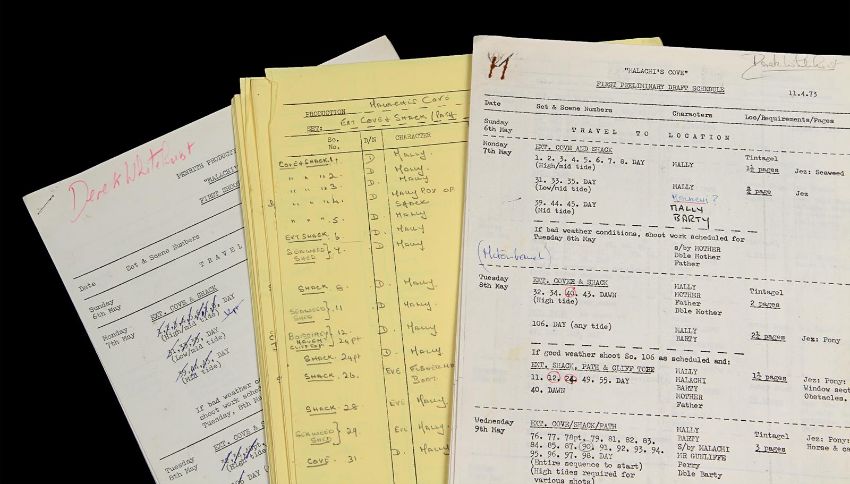 Derek Whitehurst
PENRITH PRODUCTI
"MALACHI
FIRST
Date Set & Scene Numbers
TRAVEL
Sunday
6th May
Monday
7th May
EXT. COVE & SHACK
DAY
(High/mid tide)
31. 33. 35. DAY
(Low/mid tide)
39. 44. 45. DAY
(Mid tide)
If bad weather
shoot work sched
Tuesday, 8th May
Tuesday
8th May
EXT. COVE & S
(High tide)
PRODUCTION MALACHI'S COVE
SET: EXT COVE & SHACK / PATH
SC. No. D/N CHARACTER
COVE & SHACK 1. D MALLY.
" " 2 D MALLY.
" " 3 D MALLY.
" " 4. D MALLY POV OF SHACK
" " 5. D MALLY
EXT SHACK 6 D MALLY
SEAWEED SHED 7. D MALLY
SHACK 8. D. MALLY.
SEAWEED SHED 11 D MALLY.
12. D MALLY.
24pt
SHACK 24pt D MALLY
SHACK 26. EVE
SHACK 28 EVE MALLY.
SEAWEED SHED 29. EVE MALLY
COVE 31 D. MALLY
"MALACHI'S COVE"
Derek Whitehurst
FIRST PRELIMINARY DRAFT SCHEDULE 11.4.73
Date Set & Scene Numbers Characters Loc/Requirements/Pages
Sunday
6th May TRAVEL TO LOCATION
Monday
7th May EXT. COVE AND SHACK
1. 2. 3. 4. 5. 6. 7. 8. DAY MALLY Tintagel
(High/mid tide) 1½ pages Jez: Seaweed
31. 33. 35. DAY MALLY page Jez
(Low/mid tide) MALACHI?
39. 44. 45. DAY MALLY
(Mid tide) BARTY
If bad weather conditions, shoot work scheduled for
Tuesday 8th May S/by MOTHER
Dble Mother
Father
Tuesday
8th May EXT. COVER & SHACK MALLY Tintagel
32. 34. 40. 43. DAWN MOTHER
(High tide) FATHER 2 pages
Dble Mother
106. DAY (any tide) MALLY
BARTY 2½ pages Jez: Pony
If good weather shoot Sc. 106 as scheduled and:
EXT. SHACK, PATH & CLIFF TOPS MALLY
11. 12. 24. 49. 55. DAY MALACHI 1½ pages Jez: Pony:
40. DAWN BARTY Window sect
MOTHER Obstacles.
Father
Wednesday
9th May EXT. COVE/SHACK/PATH MALLY Tintagel Jez: Pony:
76. 77. 78pt. 79. 81. 82. 83. BARTY Horse & car
84. 85. 87. (90). 91. 92. 93. 94. S/by MALACHI 3 pages
95. 96. 97. 98. DAY MR GUNLIFFE
(Entire sequence to start) Perry
(High tides required for Dble Barty
various shots)